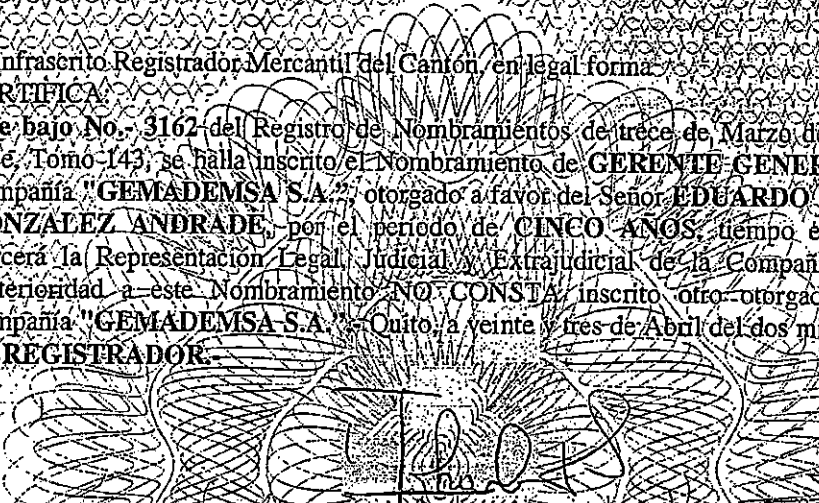 nfrascrito Registrador Mercantil del Cantón, en legal forma
RTIFICA:
e bajo No.- 3162 del Registro de Nombramientos de trece de Marzo d
e, Tomo 143, se halla inscrito el Nombramiento de GERENTE GENE
mpañía "GEMADEMSA S.A.", otorgado a favor del Señor EDUARDO
ONZALEZ ANDRADE, por el periodo de CINCO AÑOS, tiempo e
cerá la Representación Legal, Judicial y Extrajudicial de la Compañ
terioridad a este Nombramiento NO CONSTA inscrito otro otorgad
mpañía "GEMADEMSA S.A.".- Quito, a veinte y tres de Abril del dos m
REGISTRADOR.-